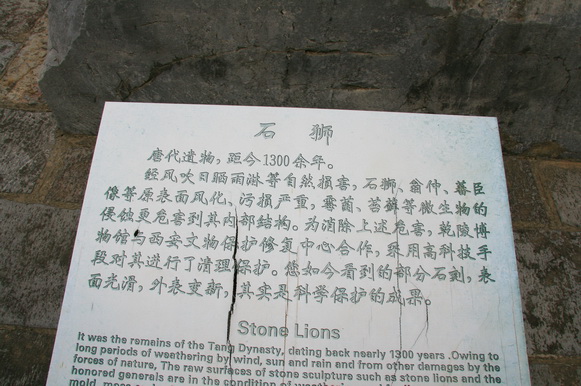 石狮
唐代遗物，距今1300余年。
经风吹日晒雨淋等自然损害，石狮、翁仲、蕃臣
像等原表面风化、污损严重，霉菌、苔藓等微生物的
侵蚀更危害到其内部结构。为消除上述危害，乾陵博
物馆与西安文物保护修复中心合作，采用高科技手
段对其进行了清理保护。您如今看到的部分石刻，表
面光滑，外表变新，其实是科学保护的成果。
Stone Lions
It was the remains of the Tang Dynasty, dating back nearly 1300 years .Owing to
long periods of weathering by wind, sun and rain and from other damages by the
forces of nature, The raw surfaces of stone sculpture such as stone lions and the
honored generals are in the condition of